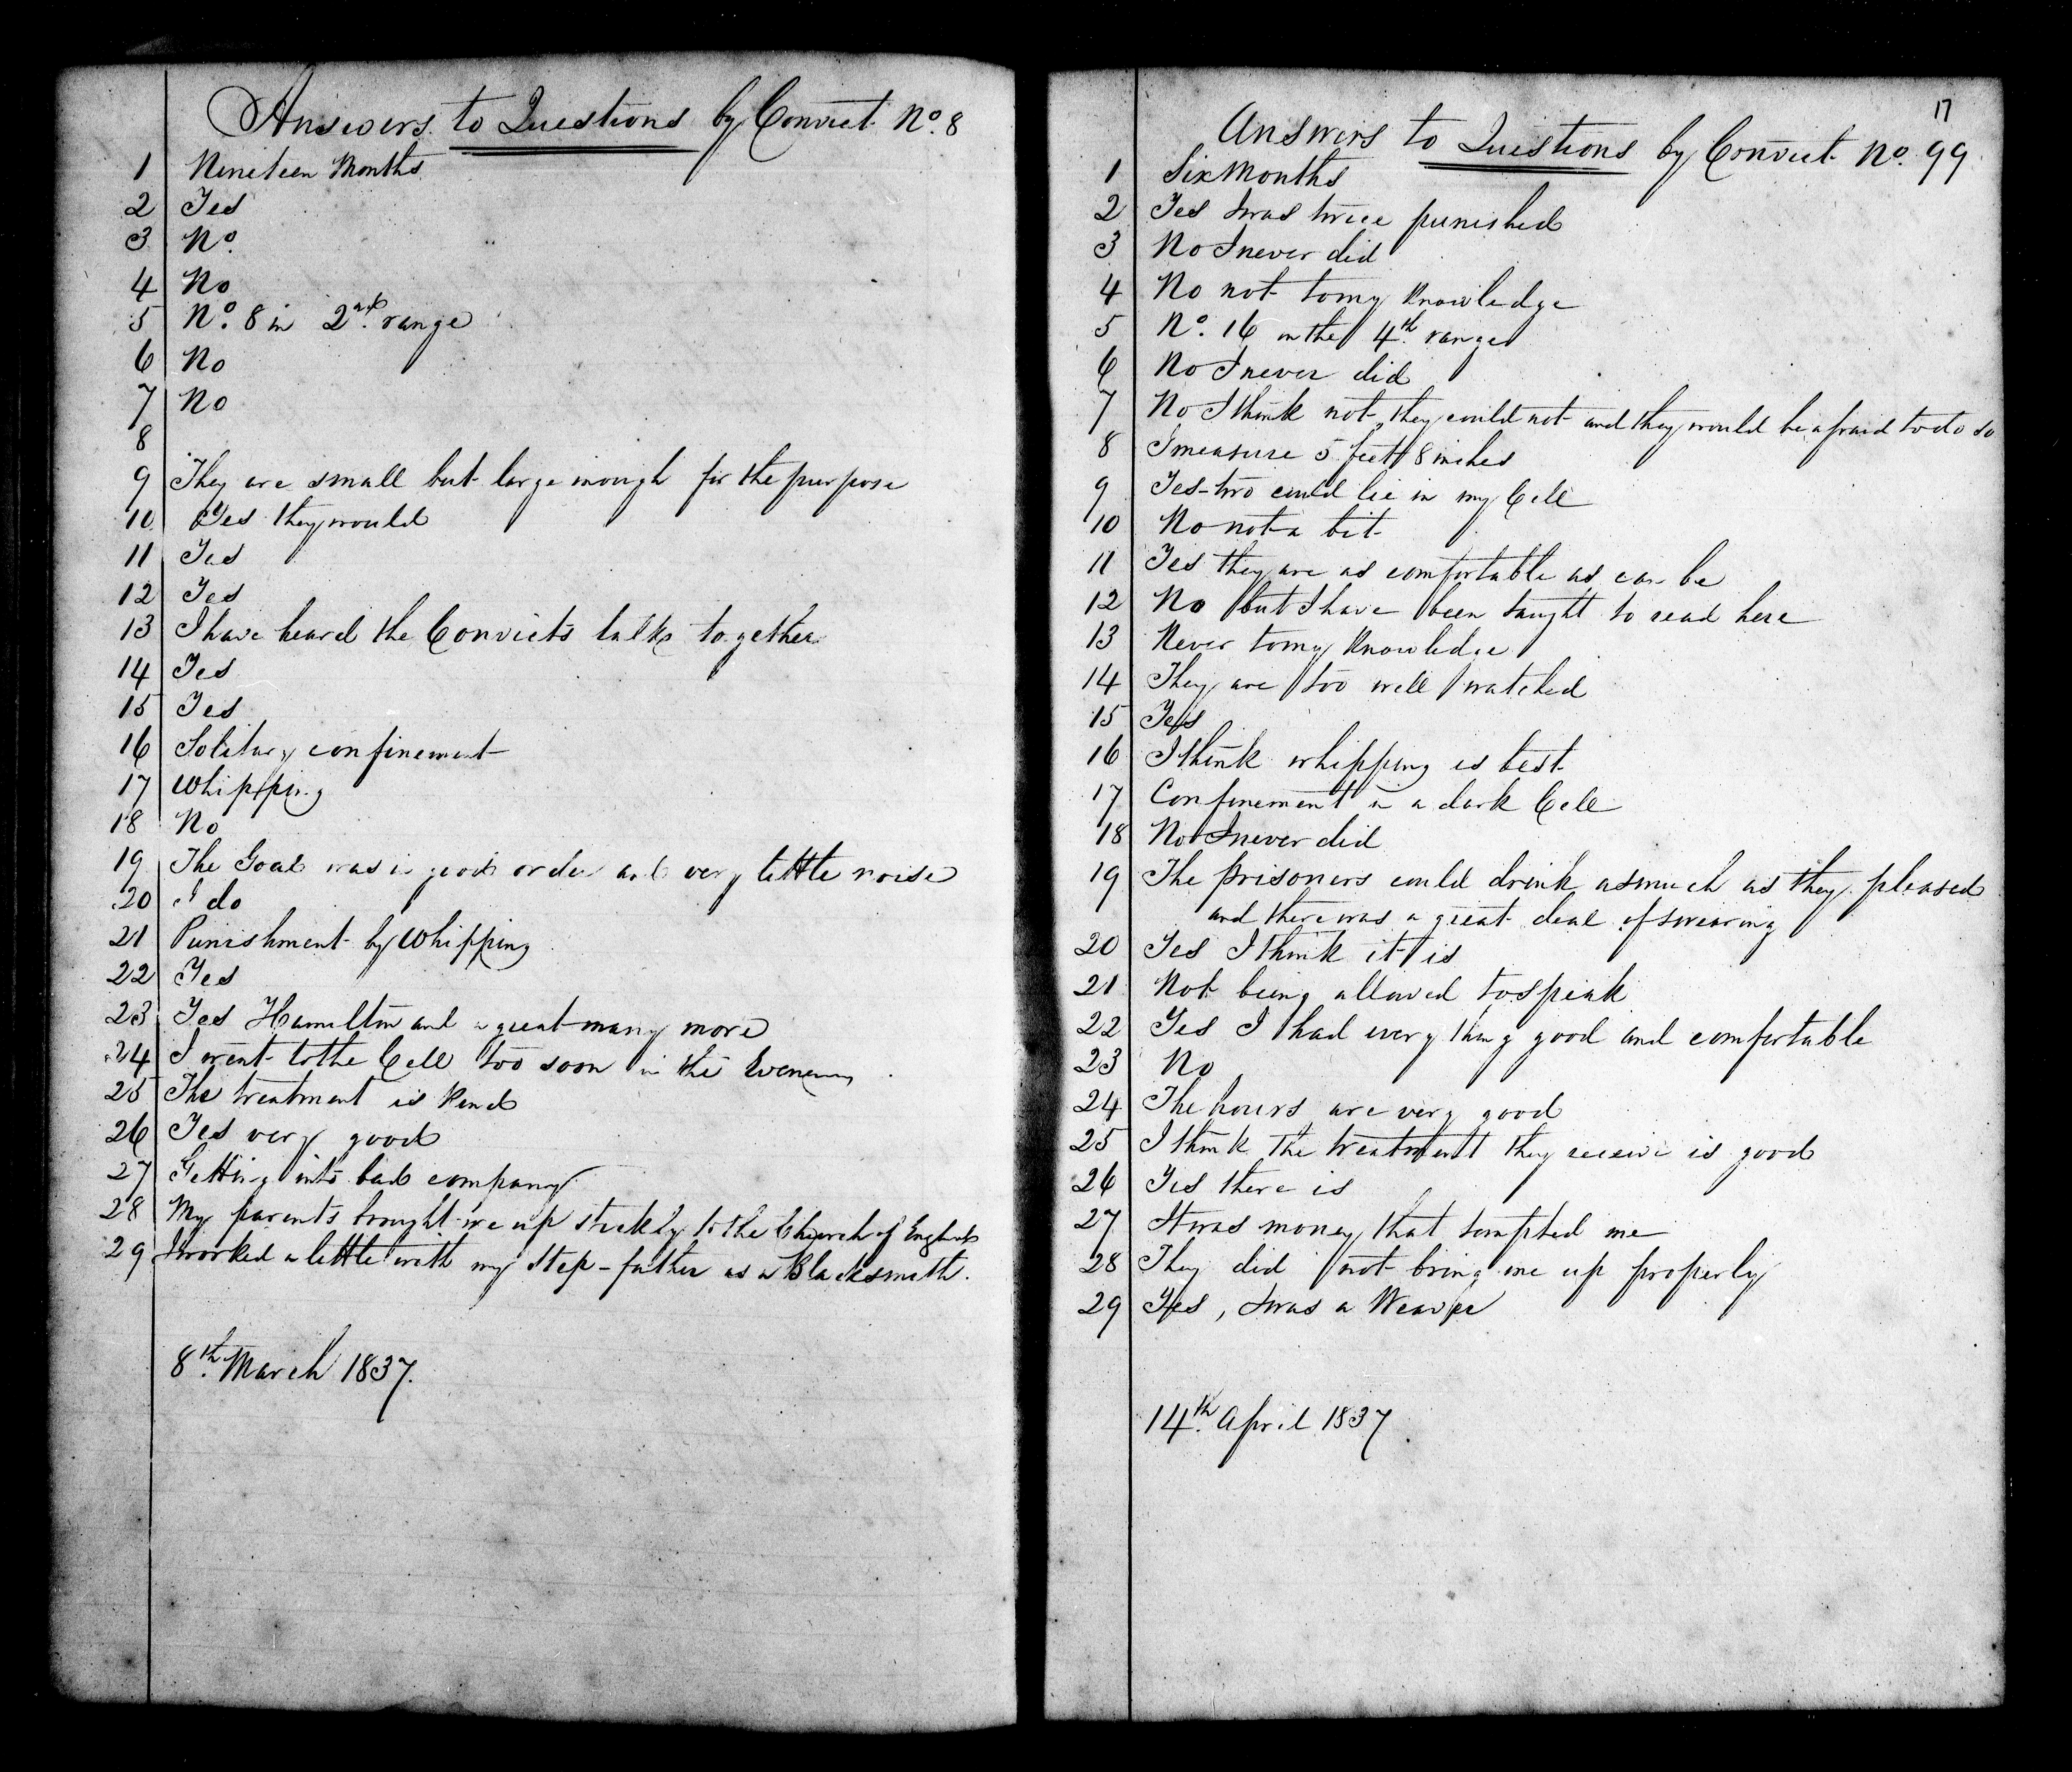 Answers to Questions by Convict No. 8
1 Nineteen Months
2 Yes
3 No.
4 No
5 No. 8 in 2nd. range
6 No
7 No
8
9 They are small but large inough for the purpose
10 Yes they would
11 Yes
12 Yes
13 I have heard the Convicts talk together
14 Yes
15 Yes
16 Solitary confinement
17 Whipping
18 No
19 The Goal was in good order and very little noise
20 I do
21 Punishment by Whipping
22 Yes
23 Yes Hamilton and a great many more
24 I went to the Cell too soon in the Evening
25 The treatment is kind
26 Yes very good
27 Getting into bad company
28 My parents brought me up strickly to the Church of England
29 I worked a little with my Step-father as a Blacksmith.
8th. March 1837.
17
Answers to Questions by Convict No. 99
1 Six Months
2 Yes I was twice punished
3 No I never did
4 No not to my knowledge
5 No. 16 in the 4th. range
6 No I never did
7 No I think not, they could not and they would be afraid to do so
8 I measure 5 feet 8 inches
9 Yes - two could lie in my Cell
10 No not a bit
11 Yes they are as comfortable as can be
12 No but I have been taught to read here
13 Never to my knowledge
14 They are too well watched
15 Yes
16 I think whipping is best
17 Confinement in a dark Cell
18 No I never did
19 The prisoners could drink as much as they pleased
and there was a great deal of swearing
20 Yes I think it is
21 Not being allowed to speak
22 Yes I had every thing good and comfortable
23 No
24 The hours are very good
25 I think the treatment they receive is good
26 Yes there is
27 It was money that tempted me
28 They did not bring me up properly
29 Yes, I was a Weaver
14th. April 1837.